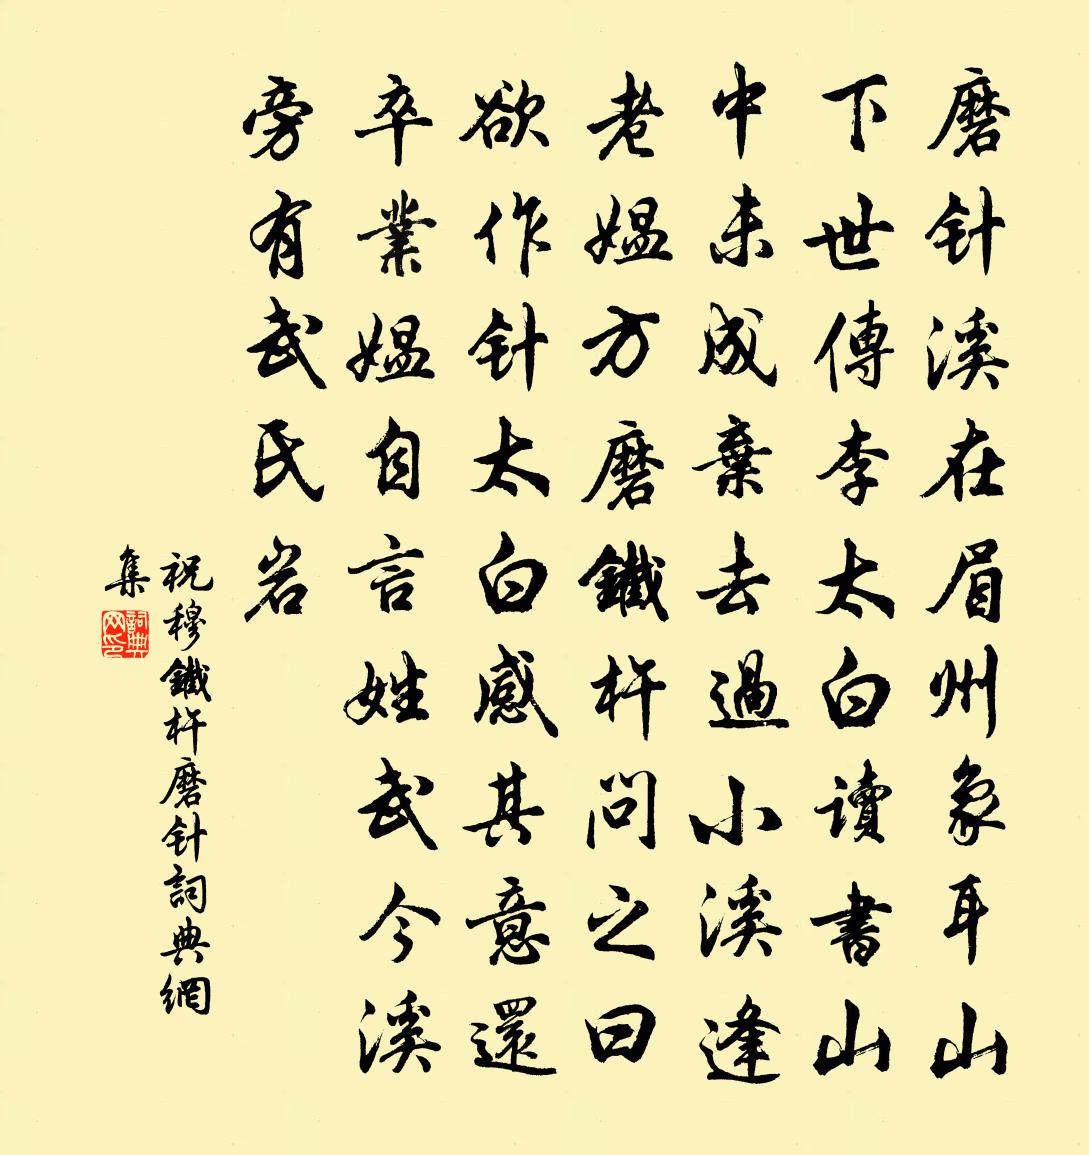 磨针溪在眉州象耳山
下世傳李太白讀書山
中未成棄去過小溪逢
老媪方磨鐵杵問之曰
欲作针太白感其意還
卒業媪自言姓武今溪
旁有武氏岩
祝穆鐵杵磨针詞典網
集
詞典网印